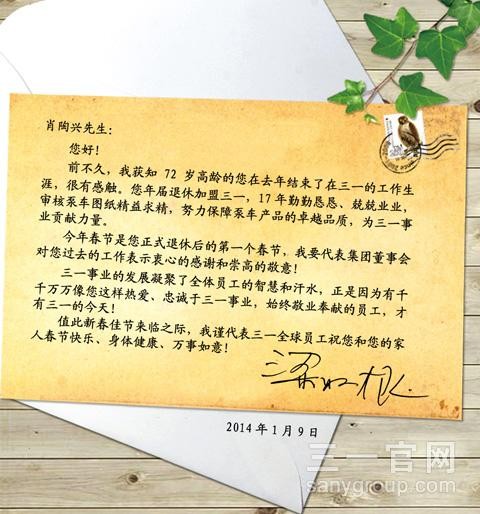 肖陶兴先生：
您好！
前不久，我获知 72 岁高龄的您在去年结束了在三一的工作生
涯，很有感触。您年届退休加盟三一，17 年勤勤恳恳、兢兢业业，
审核泵车图纸精益求精，努力保障泵车产品的卓越品质，为三一事
业贡献力量。
今年春节是您正式退休后的第一个春节，我要代表集团董事会
对您过去的工作表示衷心的感谢和崇高的敬意！
三一事业的发展凝聚了全体员工的智慧和汗水，正是因为有千
千万万像您这样热爱、忠诚于三一事业，始终敬业奉献的员工，才
有三一的今天！
值此新春佳节来临之际，我谨代表三一全球员工祝您和您的家
人春节快乐、身体健康、万事如意！
梁稳根
2014 年 1 月 9 日
三一官网
sanygroup.com